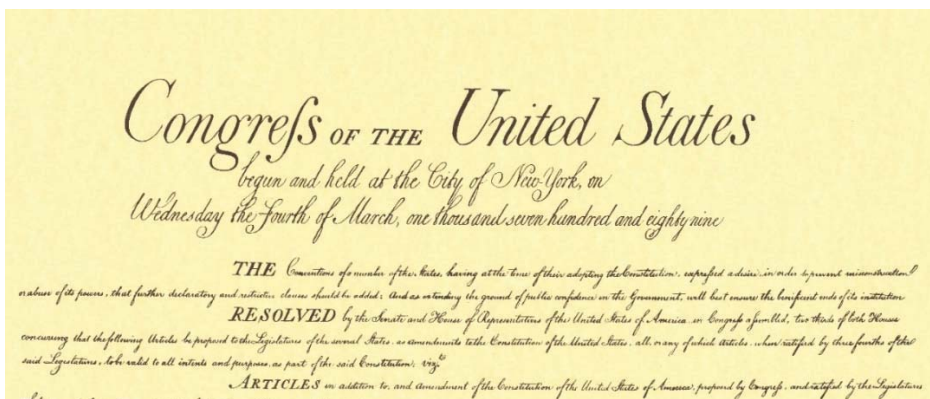 Congreſs OF THE United States
begun and held at the City of New-York, on
Wednesday the Fourth of March, one thousand seven hundred and eighty nine
THE Conventions of a number of the States, having at the time of their adopting the Constitution, expreſsed a desire, in order to prevent misconstruction
or abuse of its powers, that further declaratory and restrictive clauses should be added: And as extending the ground of public confidence in the Government, will best ensure the beneficent ends of its institution
RESOLVED by the Senate and House of Representatives of the United States of America, in Congreſs aſsembled, two thirds of both Houses
concurring that the following Articles be proposed to the Legislatures of the several States, as amendments to the Constitution of the United States, all, or any of which Articles, when ratified by three fourths of the
said Legislatures, to be valid to all intents and purposes, as part of the said Constitution; vizt.
ARTICLES in addition to, and amendment of the Constitution of the United States of America, proposed by Congreſs, and ratified by the Legislatures